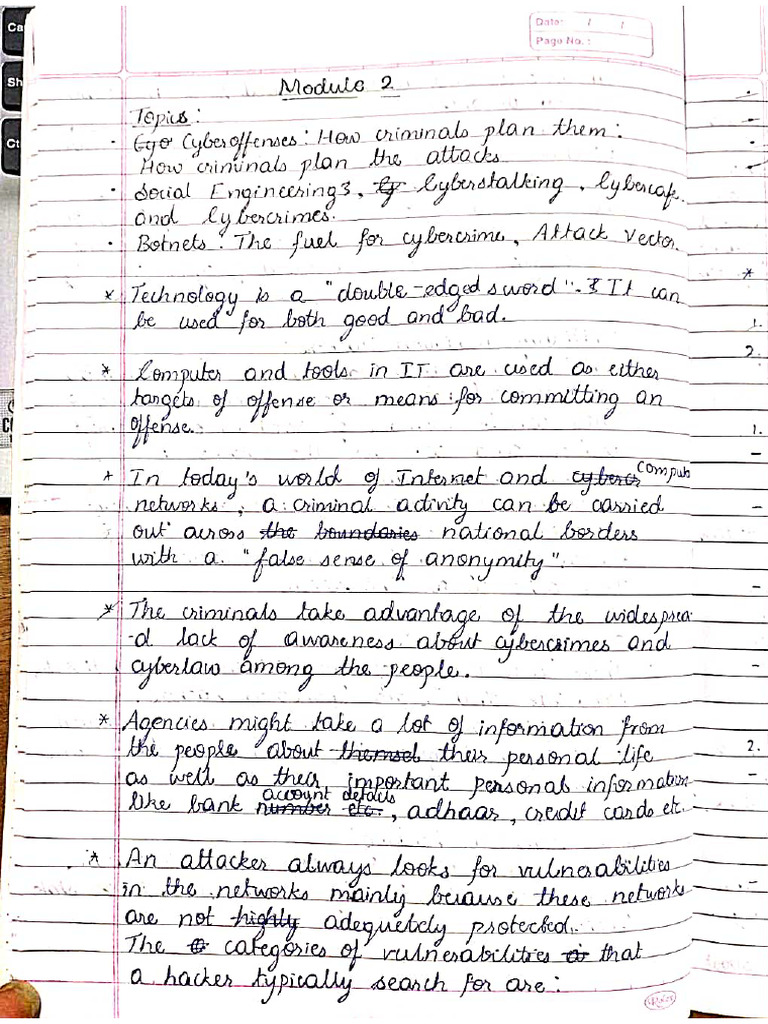 Date: / /
Page No. :
Module 2
Topics :
• Cyberoffenses : How criminals plan them :
How criminals plan the attacks
• Social Engineering, Cyberstalking, Cybercafe
and Cybercrimes.
• Botnets : The fuel for cybercrime, Attack Vector.
* Technology is a "double-edged sword". It can
be used for both good and bad.
* Computer and tools in IT are used as either
targets of offense or means for committing an
offense.
* In today's world of Internet and Comput
networks, a criminal activity can be carried
out across the boundaries national borders
with a "false sense of anonymity".
* The criminals take advantage of the widesprea
-d lack of awareness about cybercrimes and
cyberlaw among the people.
* Agencies might take a lot of information from
the people about themsel their personal life
as well as their important personal information
like bank number etc. account details, adhaar, credit cards etc.
* An attacker always looks for vulnerabilities
in the networks mainly because these networks
are not highly adequetely protected.
The categories of vulnerabilities that
a hacker typically search for are :
*
1.
2.
1.
2.
Ca
Sh
Ct